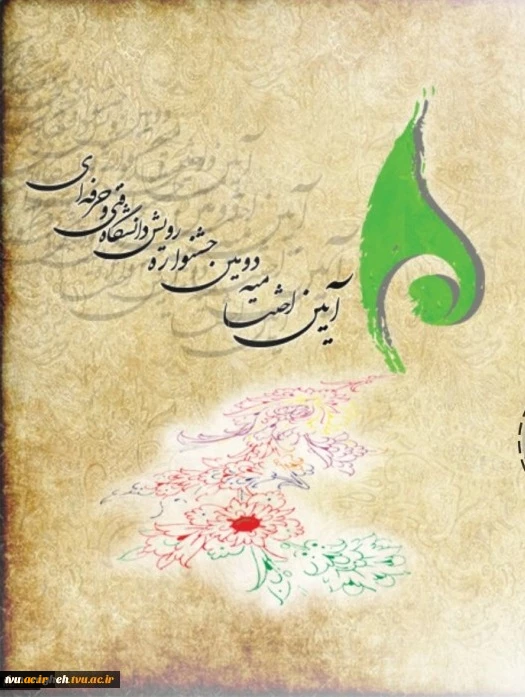 آیین اختتامیه
دومین
جشنواره
رویش دانشگاه
فنی و حرفه ای
tvu.ac.ir
tvu.ac.ir